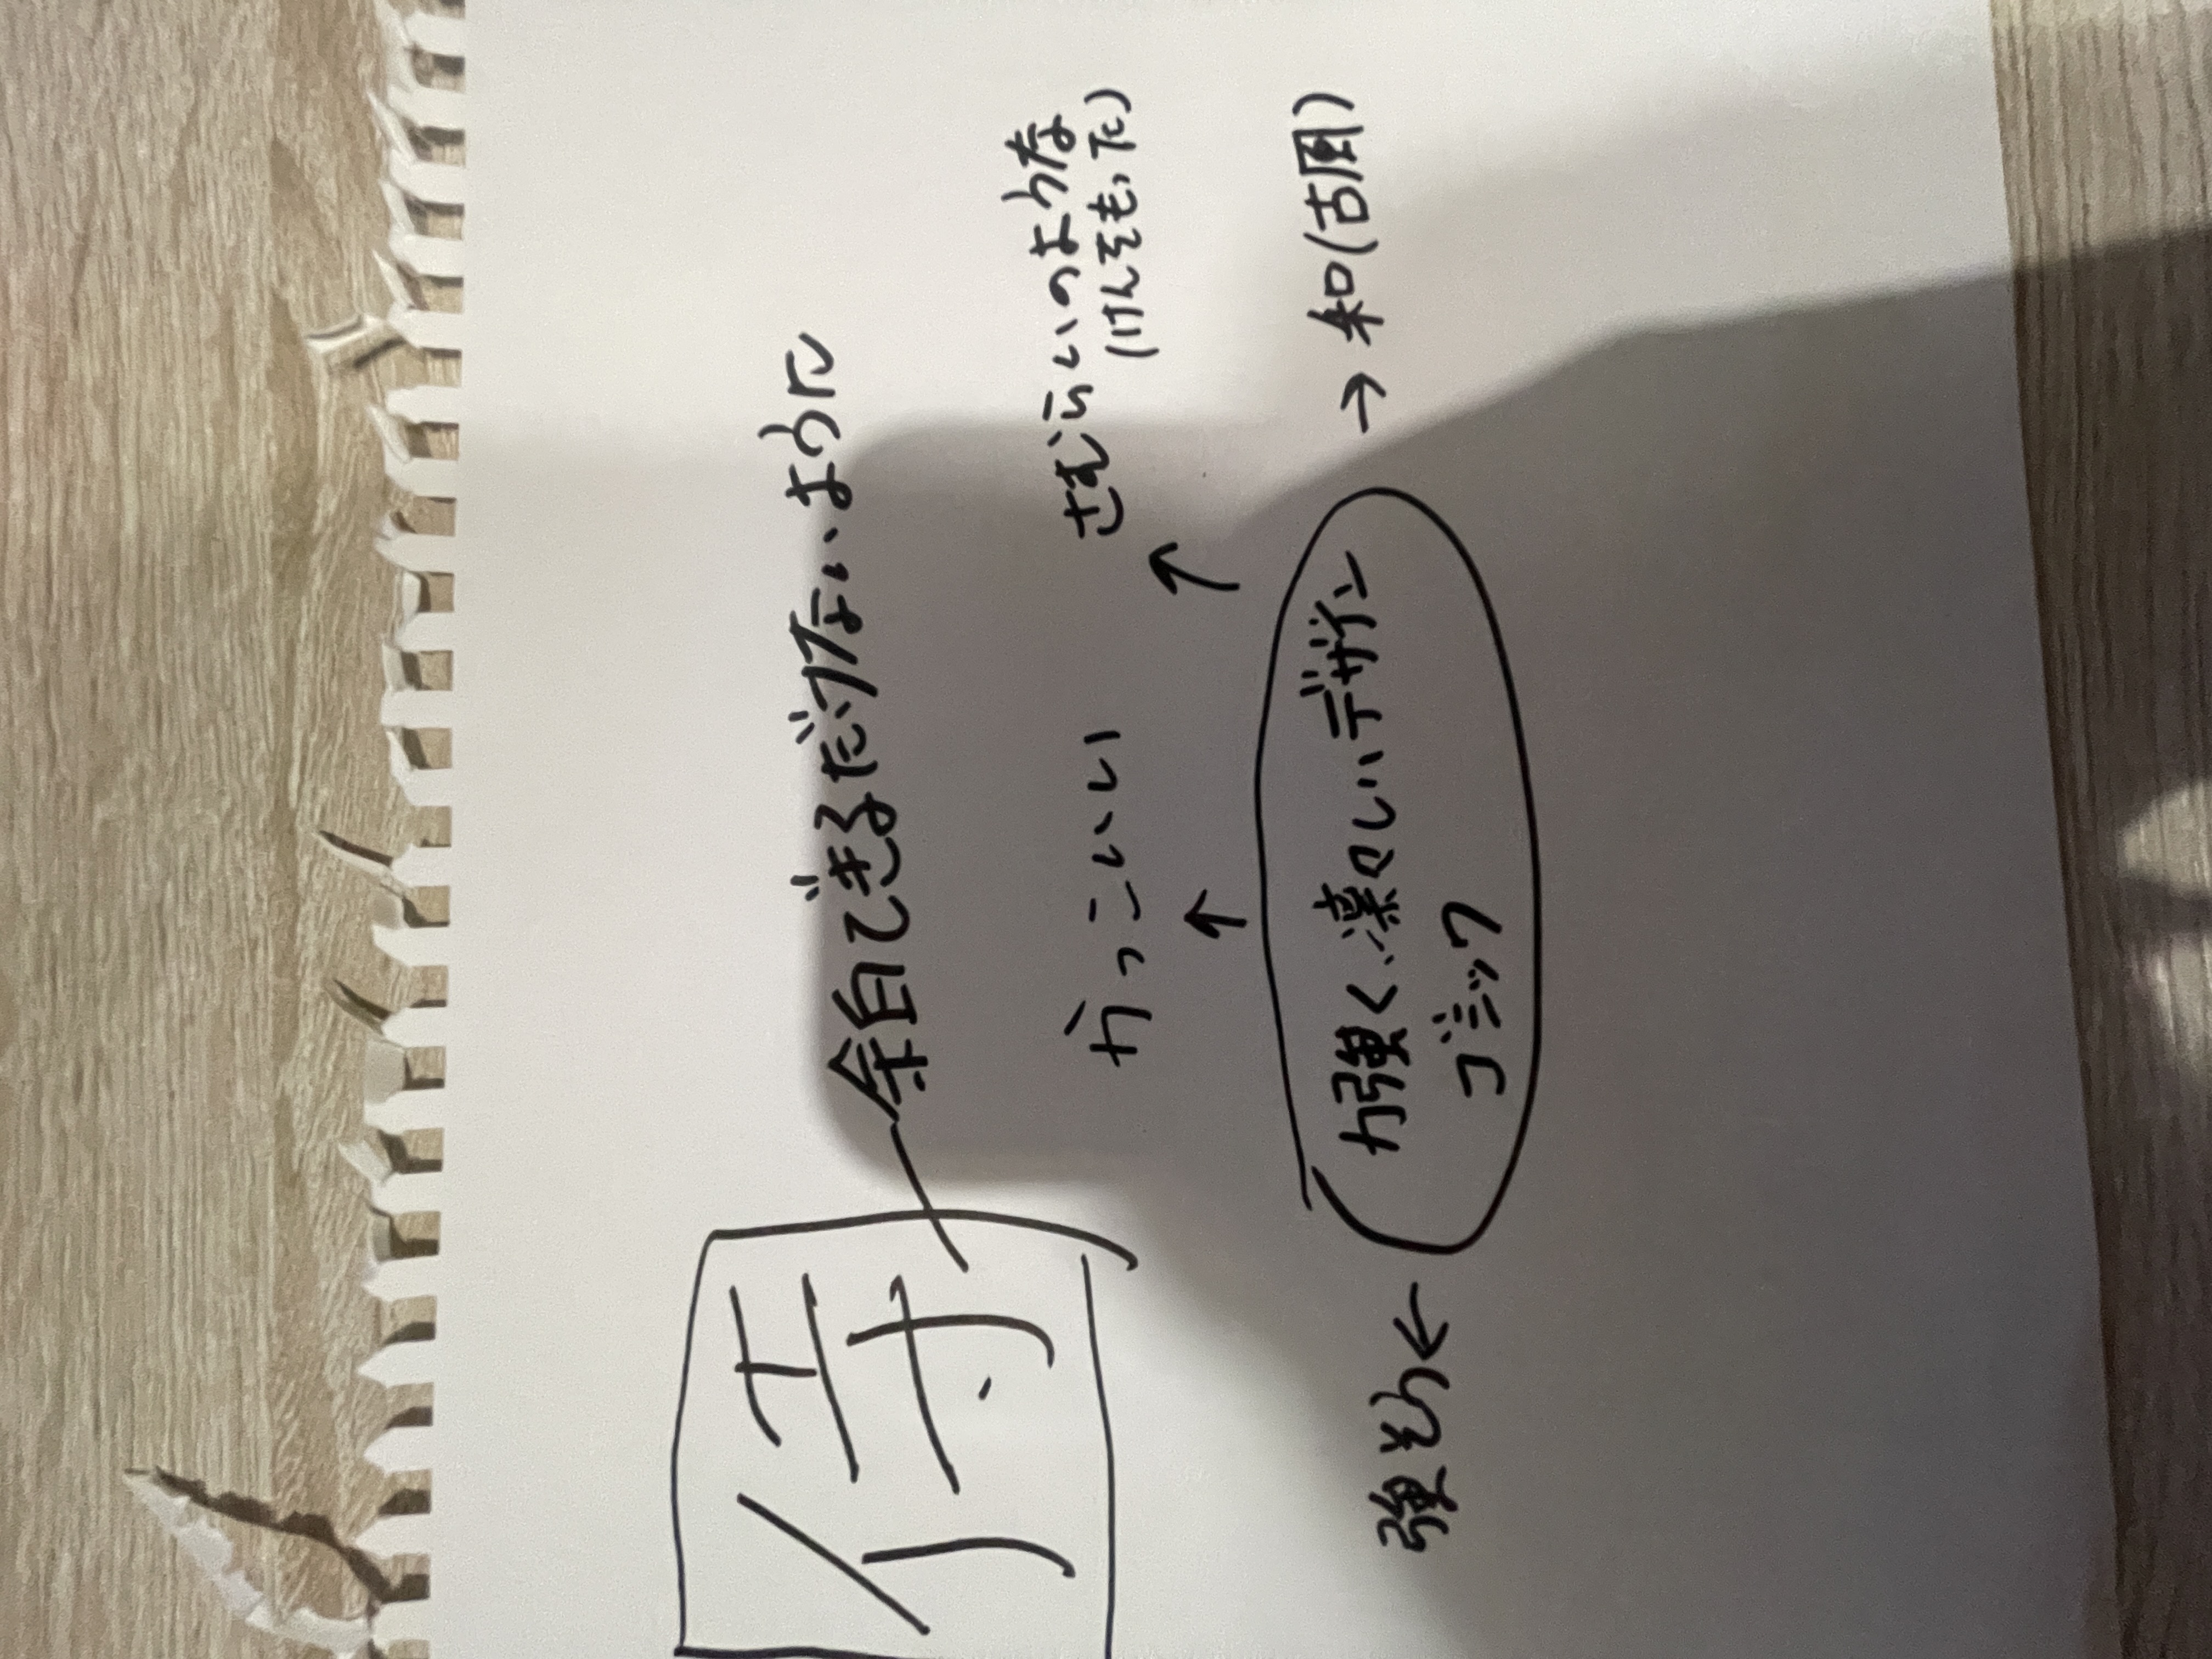 侍
余白できるだけないように
かっこいい
さむらいのような
(けんをもった)
力強く、凛々しいデザイン
ゴミック
強そう←
→和(古風)